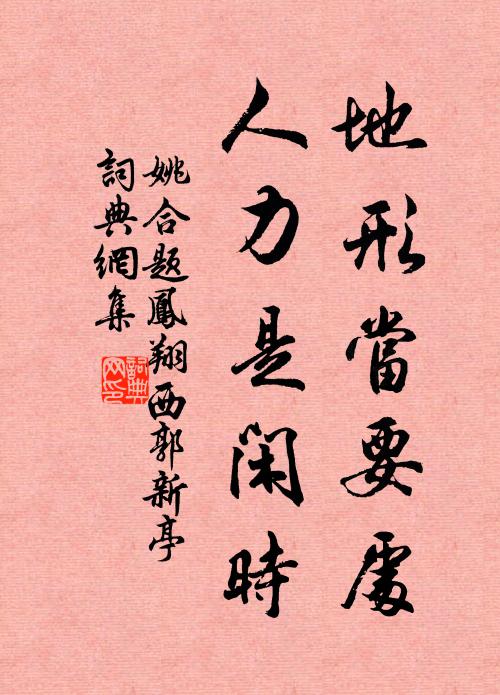 地形當要處
人力是閑時
姚合題鳳翔西郭新亭
詞典網集
詞典網印